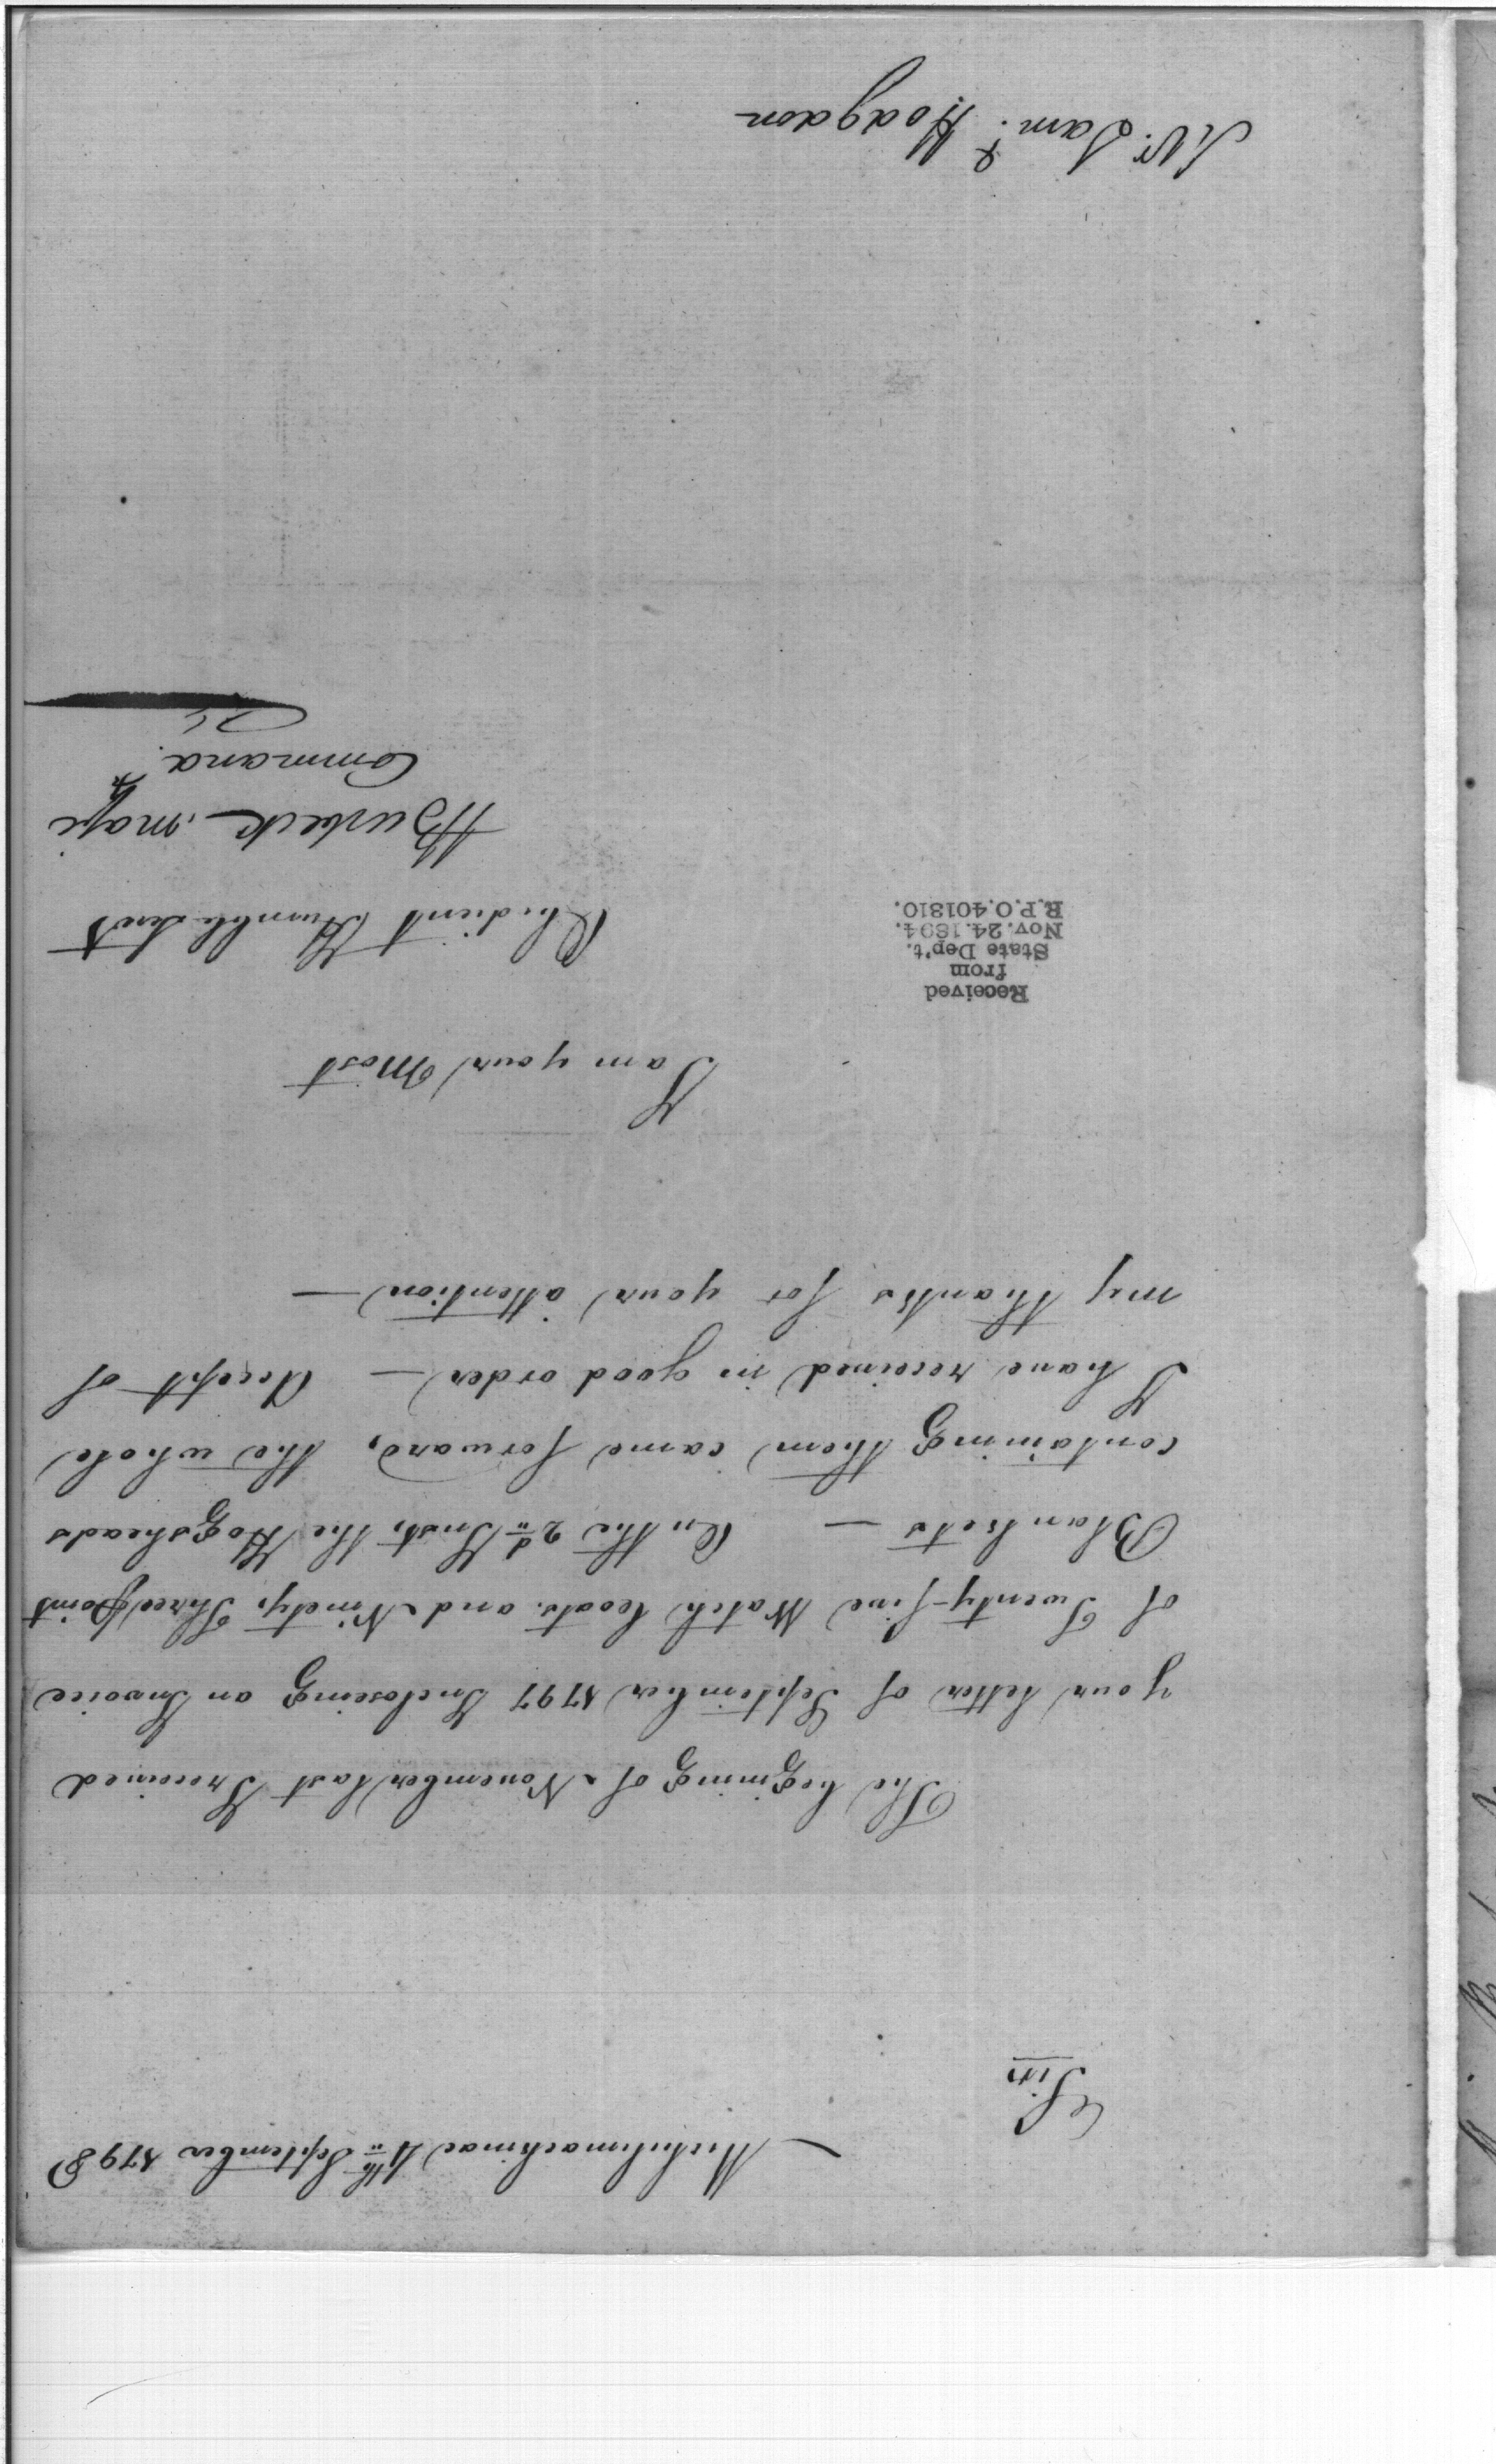 Michilimackinac 4th September 1798
Sir
The begining of November last I received
your letter of September 1797 Incloseing an Invoice
of Twenty-five Watch Coats and Ninety, Three point
Blankets — On the 2d Inst, the Hogsheads
containing them came forward, the whole
I have received in good order — Accept of
my thanks for your attention —
I am your Most
Obedient Humble Servt
HBurbeck Majr
Command.
Received
from
State Dep't.
Nov. 24. 1894.
R.P.O. 401810.
Mr. Saml. Hodgdon